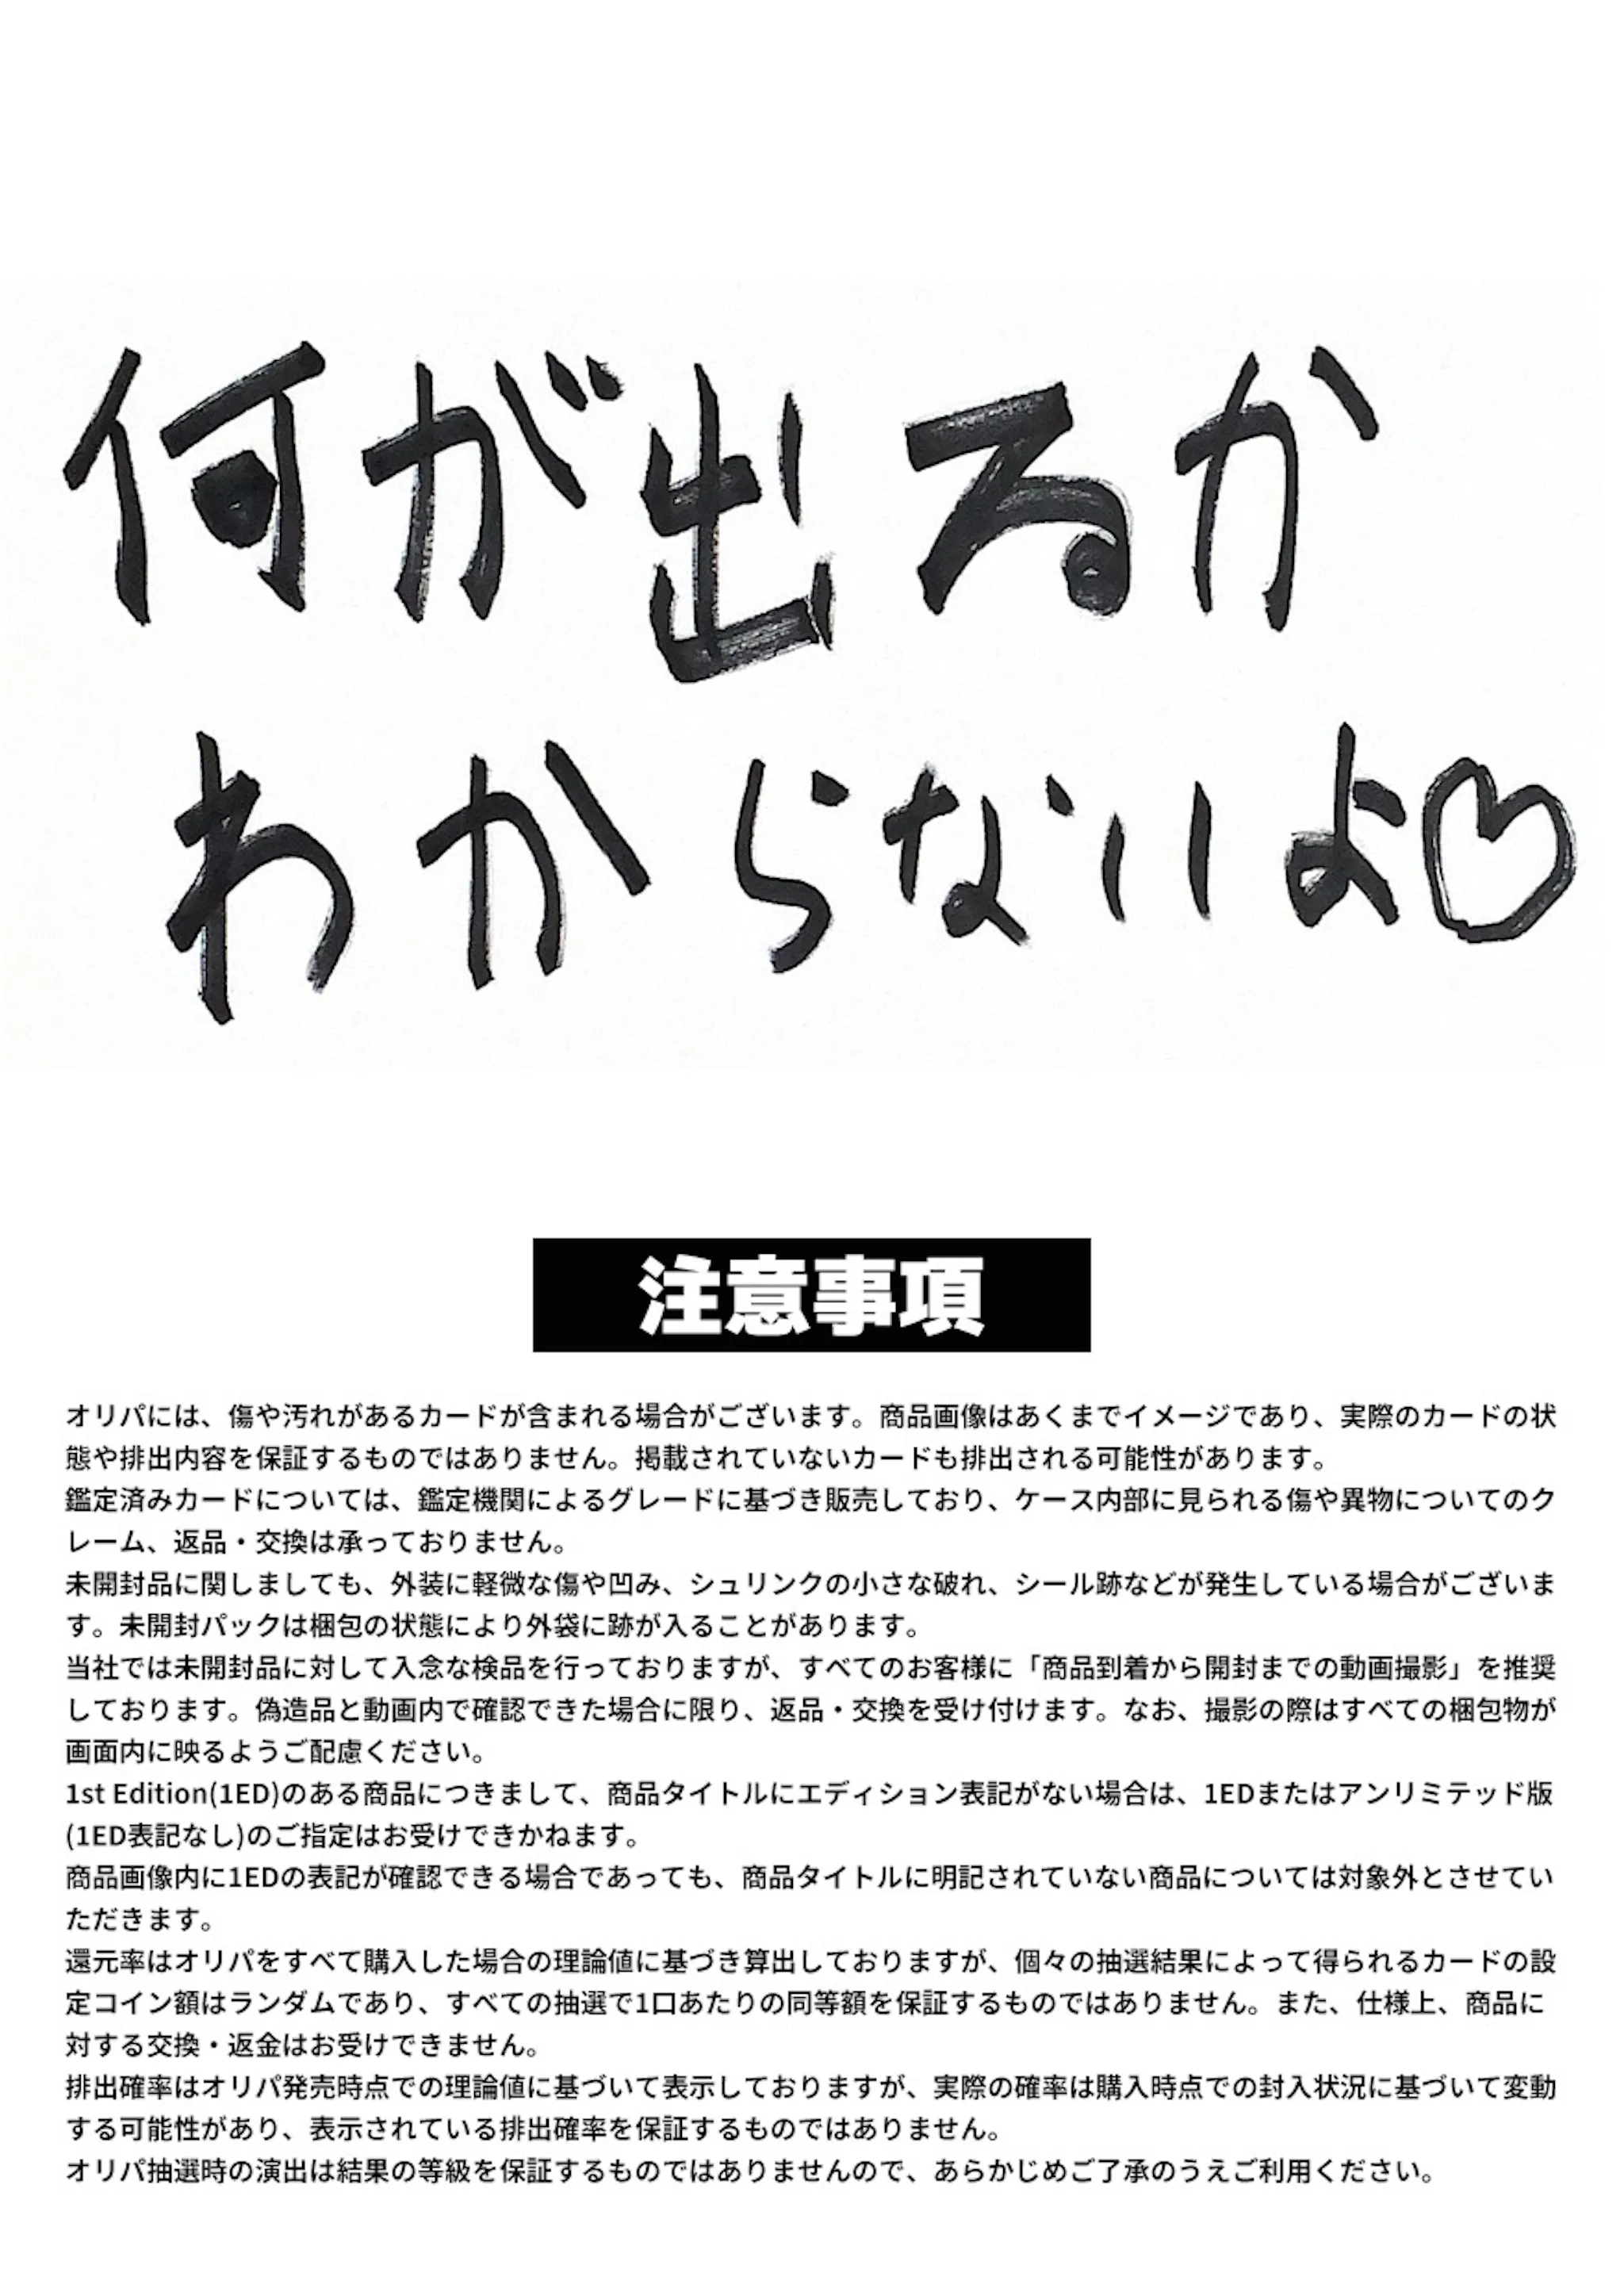 何が出るか
わからないよ♡
注意事項
オリパには、傷や汚れがあるカードが含まれる場合がございます。商品画像はあくまでイメージであり、実際のカードの状
態や排出内容を保証するものではありません。掲載されていないカードも排出される可能性があります。
鑑定済みカードについては、鑑定機関によるグレードに基づき販売しており、ケース内部に見られる傷や異物についてのク
レーム、返品・交換は承っておりません。
未開封品に関しましても、外装に軽微な傷や凹み、シュリンクの小さな破れ、シール跡などが発生している場合がございま
す。未開封パックは梱包の状態により外袋に跡が入ることがあります。
当社では未開封品に対して入念な検品を行っておりますが、すべてのお客様に「商品到着から開封までの動画撮影」を推奨
しております。偽造品と動画内で確認できた場合に限り、返品・交換を受け付けます。なお、撮影の際はすべての梱包物が
画面内に映るようご配慮ください。
1st Edition(1ED)のある商品につきまして、商品タイトルにエディション表記がない場合は、1EDまたはアンリミテッド版
(1ED表記なし)のご指定はお受けできかねます。
商品画像内に1EDの表記が確認できる場合であっても、商品タイトルに明記されていない商品については対象外とさせてい
ただきます。
還元率はオリパをすべて購入した場合の理論値に基づき算出しておりますが、個々の抽選結果によって得られるカードの設
定コイン額はランダムであり、すべての抽選で1口あたりの同等額を保証するものではありません。また、仕様上、商品に
対する交換・返金はお受けできません。
排出確率はオリパ発売時点での理論値に基づいて表示しておりますが、実際の確率は購入時点での封入状況に基づいて変動
する可能性があり、表示されている排出確率を保証するものではありません。
オリパ抽選時の演出は結果の等級を保証するものではありませんので、あらかじめご了承のうえご利用ください。